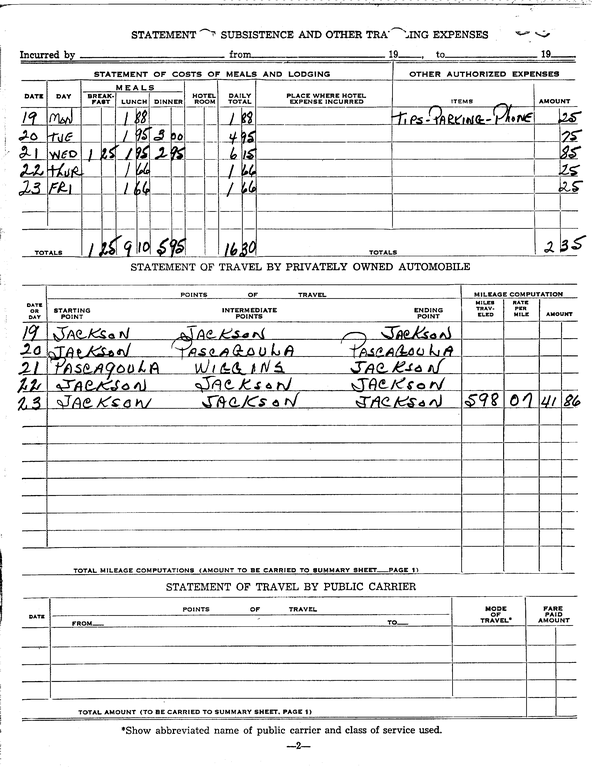 STATEMENT SUBSISTENCE AND OTHER EXPENSES
Incurred by from 19 , to 19
STATEMENT OF COSTS OF MEALS AND LODGING OTHER AUTHORIZED EXPENSES
DATE DAY MEALS HOTEL ROOM DAILY TOTAL PLACE WHERE HOTEL EXPENSE INCURRED ITEMS AMOUNT
BREAK-FAST LUNCH DINNER
19 MON 1 88 1 88 TIPS-PARKING-PHONE 25
20 TUE 1 95 3 00 4 95 75
21 WED 1 25 1 95 2 95 6 15 85
22 THUR 1 66 1 66 25
23 FRI 1 66 1 66 25
TOTALS 1 25 9 10 5 95 16 30 TOTALS 2 35
STATEMENT OF TRAVEL BY PRIVATELY OWNED AUTOMOBILE
DATE OR DAY POINTS OF TRAVEL MILEAGE COMPUTATION
STARTING POINT INTERMEDIATE POINTS ENDING POINT MILES TRAV-ELED RATE PER MILE AMOUNT
19 JACKSON JACKSON JACKSON
20 JACKSON PASCAGOULA PASCAGOULA
21 PASCAGOULA WIGGINS JACKSON
22 JACKSON JACKSON JACKSON
23 JACKSON JACKSON JACKSON 598 07 41 86
TOTAL MILEAGE COMPUTATIONS (AMOUNT TO BE CARRIED TO SUMMARY SHEET—PAGE 1)
STATEMENT OF TRAVEL BY PUBLIC CARRIER
DATE POINTS OF TRAVEL MODE OF TRAVEL* FARE PAID AMOUNT
FROM TO
TOTAL AMOUNT (TO BE CARRIED TO SUMMARY SHEET, PAGE 1)
*Show abbreviated name of public carrier and class of service used.
—2—